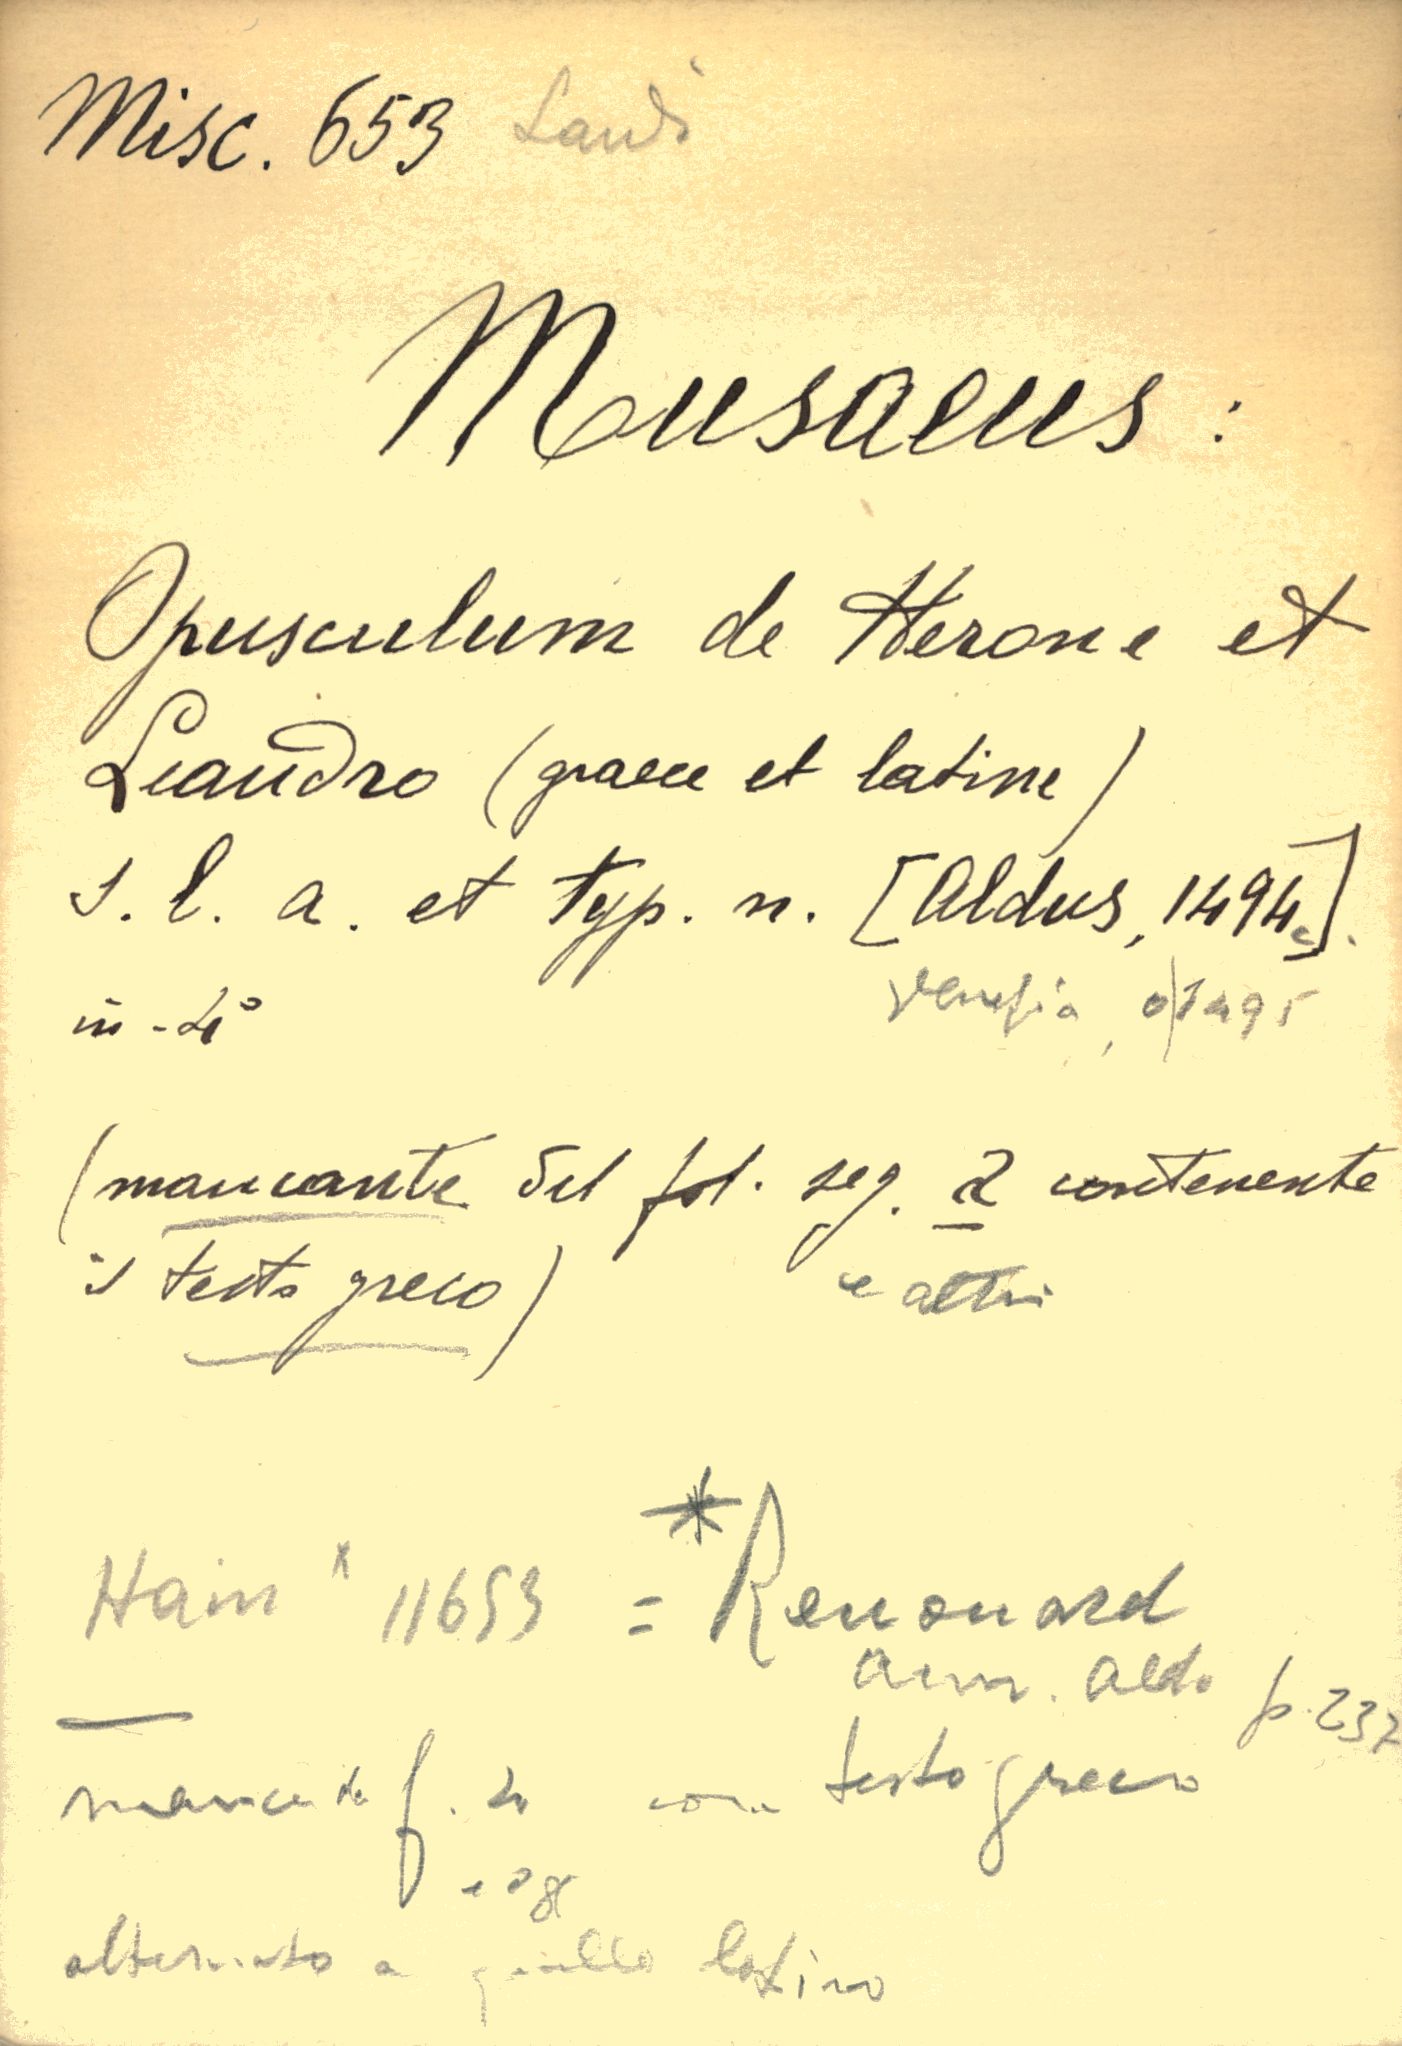 Misc. 653 Landi
Musaeus:
Opusculum de Herone et
Leandro (graece et latine)
s. l. a. et typ. n. [Aldus, 1494].
in-4° Venezia, 1495
(mancante del fol. seg. 2 contenente
il testo greco) e altri
Hain * 11653 = *Renouard
Ann. Aldo p. 237
f. 2 con testo greco
alternato a quello latino